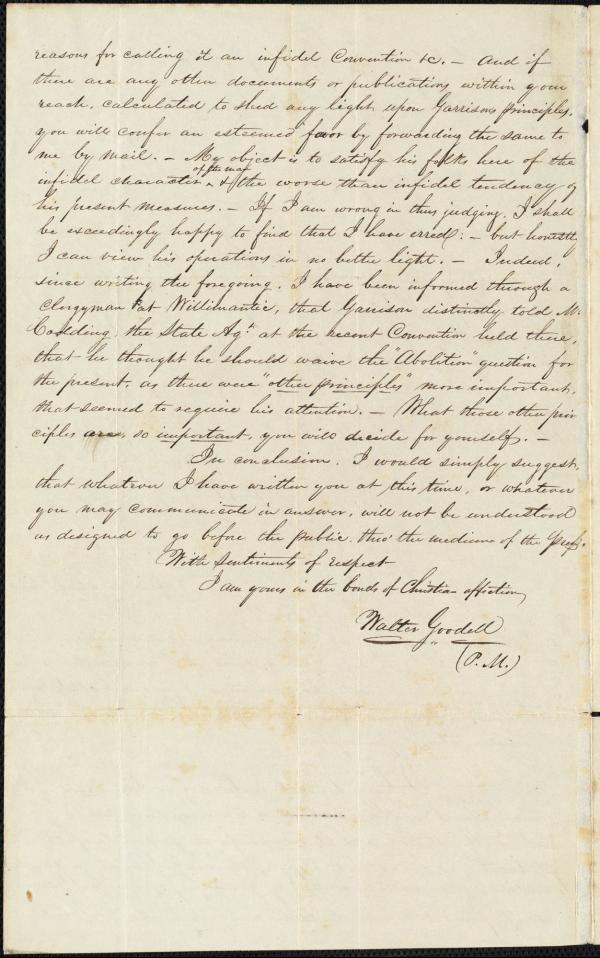 reasons for calling it an infidel Convention &c. — And if
there are any other documents or publications within your
reach, calculated to shed any light upon Garrisons principles,
you will confer an esteemed favor by forwarding the same to
me by mail. — My object is to satisfy his folks here of the
of the man
infidel character ^ & the worse than infidel tendency of
his present measures. — If I am wrong in thus judging, I shall
be exceedingly happy to find that I have erred: — but honestly
I can view his operations in no better light. — Indeed,
since writing the foregoing, I have been informed through a
Clergyman at Willimantic, that Garrison distinctly told Mr.
the State Agt. at the recent Convention held there,
that he thought he should waive the "Abolition" question for
the present, as there were "other principles" more important,
that seemed to require his attention. — What those other prin
ciples are, so important, you will decide for yourself. —
In conclusion, I would simply suggest,
that whatever I have written you at this time, or whatever
you may communicate in answer, will not be understood
as designed to go before the public, thro' the medium of the Press.
With sentiments of respect
I am yours in the bonds of Christian affection,
Walter Goodell
(P. M.)